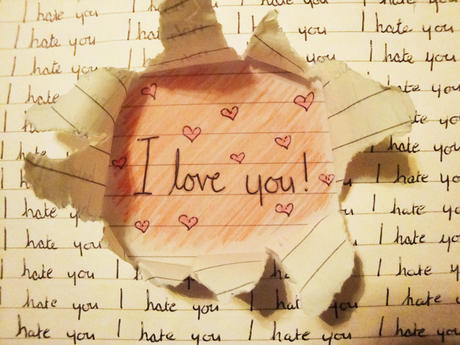 I hate you I hate you I hate you
I hate you I you I hate you
I hate you I hate you
I hate hate you
I hate you
hate you
I love you!
I hate you I hate you
I hate you I hate you
I hate you I hate you
I hate you I hate you I hate you
hate you I hate you I hate you I hate you